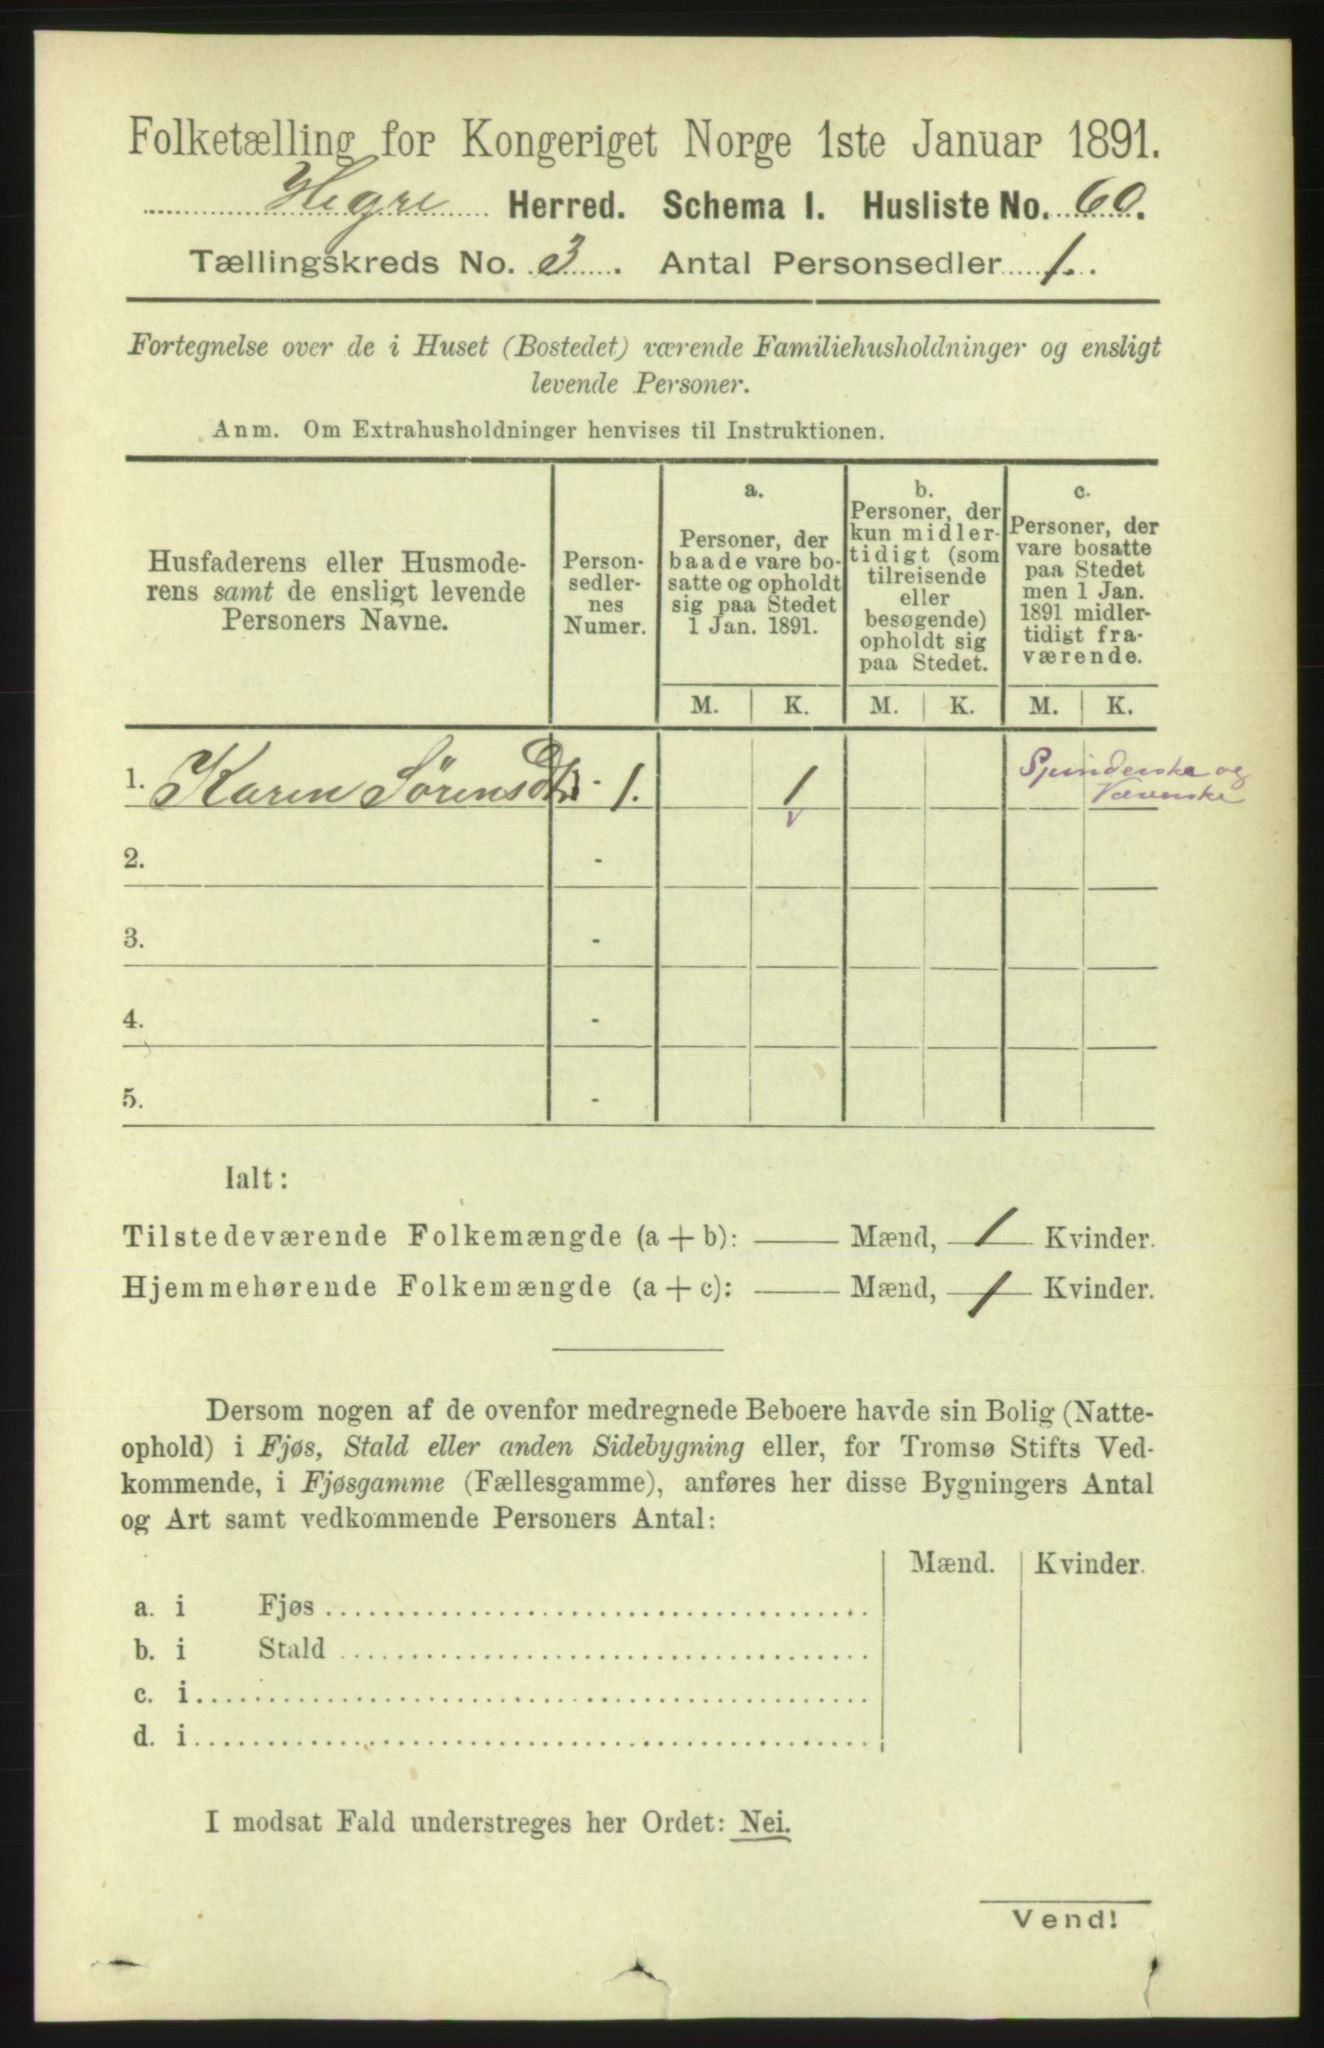 Folketælling for Kongeriget Norge 1ste Januar 1891.
Hegre Herred. Schema I. Husliste No. 60.
Tællingskreds No. 3. Antal Personsedler 1.
Fortegnelse over de i Huset (Bostedet) værende Familiehusholdninger og ensligt
levende Personer.
Anm. Om Extrahusholdninger henvises til Instruktionen.
Husfaderens eller Husmode-
rens samt de ensligt levende
Personers Navne.
Person-
sedler-
nes
Numer.
a.
Personer, der
baade vare bo-
satte og opholdt
sig paa Stedet
1 Jan. 1891.
b.
Personer, der
kun midler-
tidigt (som
tilreisende
eller
besøgende)
opholdt sig
paa Stedet.
c.
Personer, der
vare bosatte
paa Stedet
men 1 Jan.
1891 midler-
tidigt fra-
værende.
M. K. M. K. M. K.
1. Karen Sørensdtr - 1. 1 Spinderske og
Væverske
v
2. -
3. -
4. -
5. -
Ialt:
Tilstedeværende Folkemængde (a + b): Mænd, 1 Kvinder.
Hjemmehørende Folkemængde (a + c): Mænd, 1 Kvinder.
Dersom nogen af de ovenfor medregnede Beboere havde sin Bolig (Natte-
ophold) i Fjøs, Stald eller anden Sidebygning eller, for Tromsø Stifts Ved-
kommende, i Fjøsgamme (Fællesgamme), anføres her disse Bygningers Antal
og Art samt vedkommende Personers Antal:
Mænd. Kvinder.
a. i Fjøs
b. i Stald
c. i
d. i
I modsat Fald understreges her Ordet: Nei.
Vend!